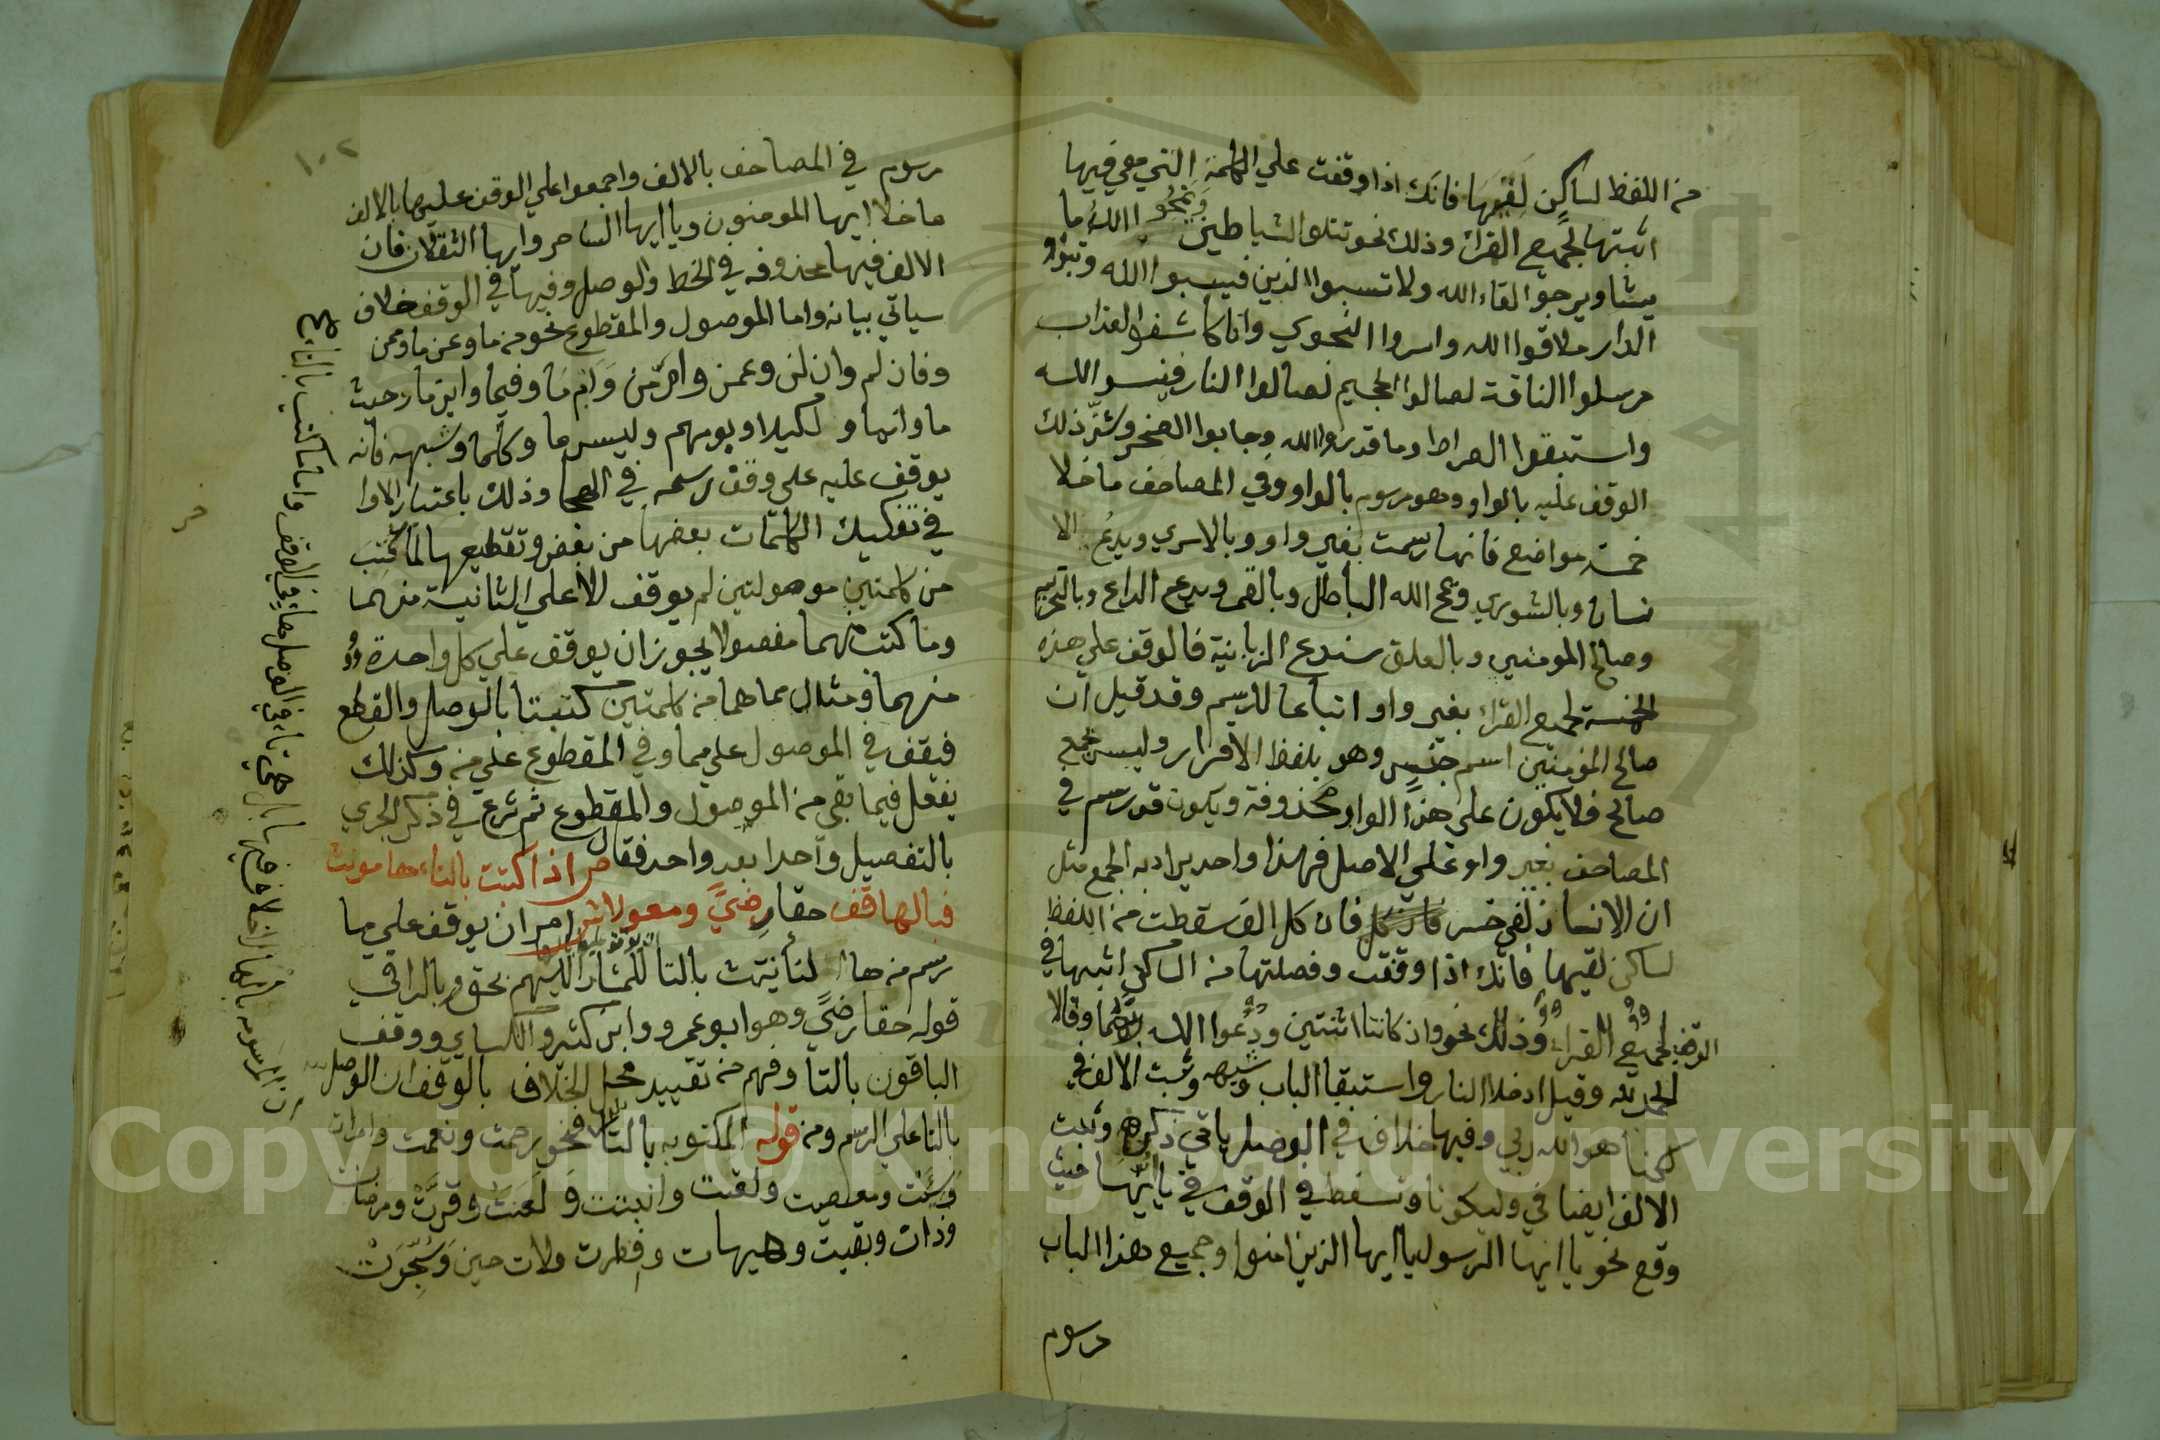 من اللفظ لساكن لقيها فانك اذا وقفت علي الكلمة التي هي فيها
اثبتها لجميع القراء وذلك نحو تتلوا الشياطين ويمحوا الله ما
يشاء ويرجوا لقاء الله ولا تسبوا الذين فيسبوا الله وتبوؤ
الدار ملاقوا الله واسروا النجوي وانا كاشفوا العذاب
مرسلوا الناقة لصالوا الجحيم لصالوا النار فنسوا الله
واستبقوا الصراط وما قدروا الله وجابوا الصخر وشبه ذلك
الوقف عليه بالواو وهو مرسوم بالواو في المصاحف ما خلا
خمسة مواضع فانها رسمت بغير واو وبالاسري ويدع الا
نسان وبالشوري ويمح الله الباطل وبالقمر ويدع الداع وبالتحريم
وصالح المومنين وبالعلق سندع الزبانية فالوقف علي هذه
الخمسة لجميع القراء بغير واو اتباعا للرسم وقد قيل ان
صالح المؤمنين اسم جنس وهو بلفظ الافراد وليس بجمع
صالح فلا يكون علي هذا الواو محذوفة ويكون قد رسم في
المصاحف بغير واو علي الاصل فهذا واحد يراد به الجمع مثل
ان الانسان لفي خسر فان كل الف سقطت من اللفظ
لساكن لقيها فانك اذا وقفت وفصلتها من الساكن اثبتها في
الوقف لجميع القراء وذلك نحو واذ كانتا اثنتين ودعوا الله ربهما وقالا
الحمد لله وقيل ادخلا النار واستبقا الباب وشبهه وثبت الالف في
لكنا هو الله ربي وفيها خلاف في الوصل ياتي ذكره وثبت
الالف ايضا في وليكونا ونسفعا في الوقف في يا ايها حيث
وقع نحو يا ايها الرسول يا ايها الذين امنوا وجميع هذا الباب
مرسوم
١٠٢
مرسوم في المصاحف بالالف واجمعوا علي الوقف عليها بالالف
ما خلا ايها المومنون ويا ايها الساحر وايها الثقلان فان
الالف فيها محذوفه في الخط والوصل وفيها في الوقف خلاف
سياتي بيانه واما الموصول والمقطوع نحو من ما وعن ما وممن
وفان لم وان لن وعمن وام من وان ما وفيما واين ما وحيث
ما وانما و لكيلا ويومهم وليس ما وكلما وشبهه فانه
يوقف عليه علي وفق رسمه في الهجا وذلك باعتبار الاوا
في تفكيك الكلمات بعضها من بعض وتقطيعها لما كتب
من كلمتين موصولتين لم يوقف الا علي الثانية منهما
وما كتب منهما مفصولا يجوز ان يوقف علي كل واحدة
منهما ومثال مما هما من كلمتين كتبتا بالوصل والقطع
فيقف في الموصول علي مما وفي المقطوع علي من وكذلك
يفعل فيما بقي من الموصول والمقطوع ثم شرع في ذكر الجري
بالتفصيل واحدا بعد واحد فقال ص اذا كتبت بالتاء ها مونث
فبالها قف حقا رضيً ومعولا ش امر ان يوقف علي ما
رسم من هاء التانيث بالتا للمشار اليهم بحق وبالرا في
قوله حقا رضيً وهو ابو عمرو وابن كثير والكساي ووقف
الباقون بالتا وفهم من تقييد محل الخلاف بالوقف ان الوصل
بالتا علي الرسم ومن قوله المكتوبه بالتا نحو رحمت ونعمت وامرات
وسنت ومعصيت ولعنت وابنت و وقرت ومرضات
وذات وبقيت وهيهات وفطرت ولات حين
ان المرسومه بالهاء لا خلاف فيها بل هي تاء في الوصل هاء في الوقف واما ما كتب بالتاء